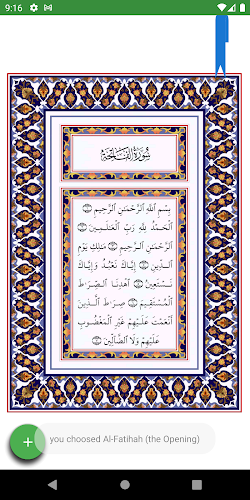 9:16
سُورَةُ الْفَاتِحَةِ
بِسْمِ اللَّهِ الرَّحْمَٰنِ الرَّحِيمِ ۝
الْحَمْدُ لِلَّهِ رَبِّ الْعَالَمِينَ ۝
الرَّحْمَٰنِ الرَّحِيمِ ۝ مَالِكِ يَوْمِ
الدِّينِ ۝ إِيَّاكَ نَعْبُدُ وَإِيَّاكَ
نَسْتَعِينُ ۝ اهْدِنَا الصِّرَاطَ
الْمُسْتَقِيمَ ۝ صِرَاطَ الَّذِينَ
أَنْعَمْتَ عَلَيْهِمْ غَيْرِ الْمَغْضُوبِ
عَلَيْهِمْ وَلَا الضَّالِّينَ ۝
+
you choosed Al-Fatihah (the Opening)